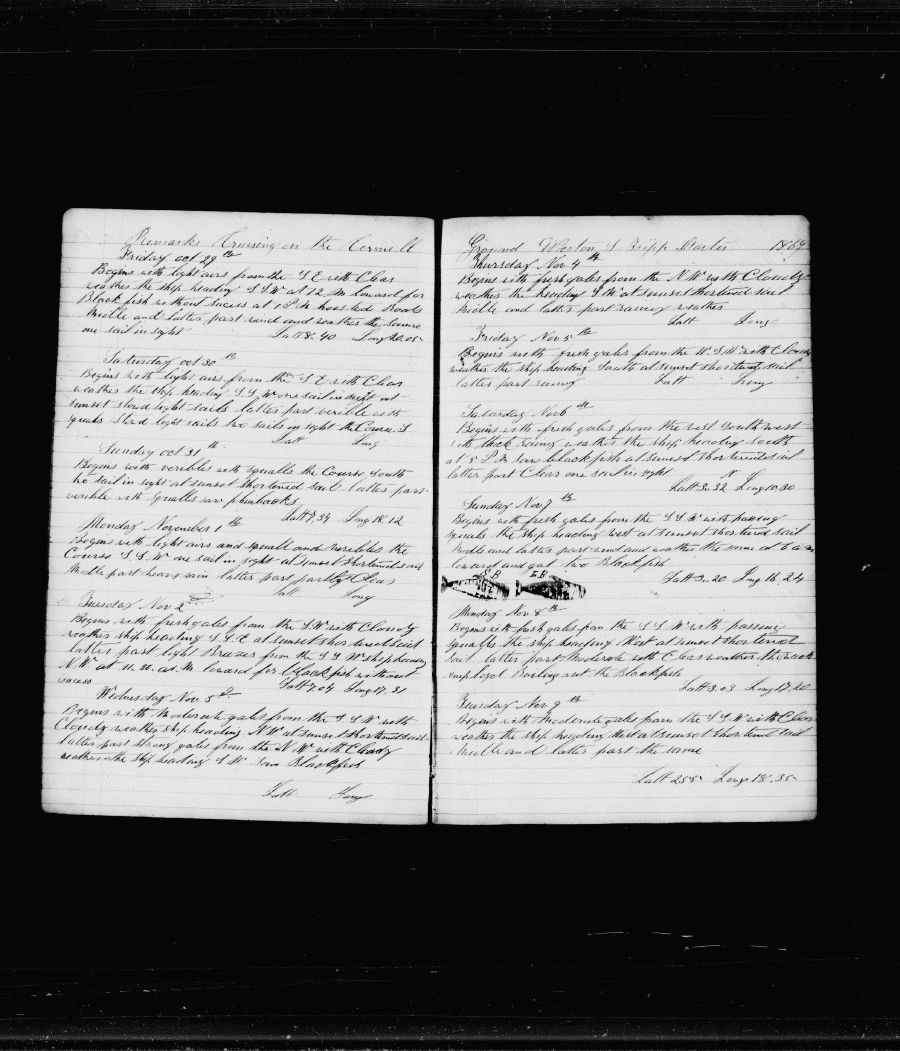 Remarks Cruising on the Cornell
Friday oct 29th
Begins with light airs from the S E with Clear
weather the ship heading S S W at 12 M lowered for
Black fish without sucess at 1 P M hoisted Boats
Middle and latter part wind and weather the same
one sail in sight Latt 8.40 Long 20.05
Saturday oct 30th
Begins with light airs from the S E with Clear
weather the ship heading S S W one sail in sight at
sunset stord light sails latter part verible with
squals Stord light sails two sails in sight the Course S
Latt Long
Sunday oct 31th
Begins with veribles with squalls the Course South
sail in sight at sunset shortened sail latter part
verible with squalls saw finbacks
Latt 7.34 Long 18.12
Monday November 1th
Begins with light airs and squall and veribles the
Course S S W one sail in sight at sunset shortened sail
Middle part heavy rain latter part partly Clear
Latt Long
Tuesday Nov 2
Begins with fresh gales from the S W with Cloudy
weather ship heading S S E at sunset shortened sail
latter part light Breezes from the S S W ship heading
N W at 11.30 A M lowered for black fish without
sucess Latt 7.04 Long 17.31
Wednesday Nov 3d
Begins with Moderate gales from the S S W with
Cloudy weather ship heading N W at sunset shortened sail
latter part strong gales from the N W with Cloudy
weather the ship heading S W saw Blackfish
Latt Long
Ground Weston S Tripp Master 1869
Thursday Nov 4th
Begins with fresh gales from the N W with Cloudy
weather the heading S W at sunset shortened sail
Middle and latter part rainey weather
Latt Long
Friday Nov 5th
Begins with fresh gales from the W S W with Cloudy
weather the ship heading South at sunset shortened sail
latter part rainy Latt Long
Saturday Nov 6th
Begins with fresh gales from the west South west
with thick rainey weather the ship heading South
at 5 P M saw blackfish at sunset shortened sail
latter part Clear one sail in sight
Latt 3.32 Long 18.30
Sunday Nov 7th
Begins with fresh gales from the S S W with passing
squals the ship heading west at sunset shortened sail
Middle and latter part wind and weather the same at 6 a m
lowered and got two Blackfish
Latt 3.20 Long 18.24
Monday Nov 8th
Begins with fresh gales from the S S W with passing
squalls the ship heading West at sunset shortened
sail latter part Moderate with Clear weather the
employed Boiling out the Blackfish
Latt 3.03 Long 17.20
Tuesday Nov 9th
Begins with Moderate gales from the S S W with Clear
weather the ship heading West at sunset shortened sail
Middle and latter part the same
Latt 2.55 Long 18.35